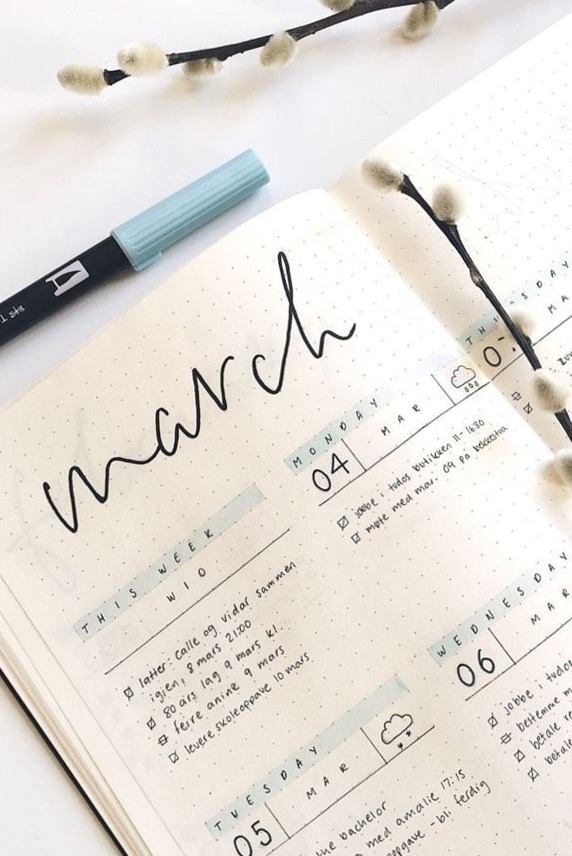 march
THIS WEEK
W10
latter: calle og vidar sammen
igjen, 8 mars 21:00
80 års lag 9 mars kl
feire anine 9 mars
levere skoleoppave 10 mars
MONDAY
04 MAR
jobbe i tudos butikken 11-1630
møte med mari 09 på bekkestua
TUESDAY
05 MAR
bachelor
med amalie 17:15
- bli ferdig
WEDNESDAY
06 MAR
jobbe i tudos
bestemme m
betale
betale
TH SDAY